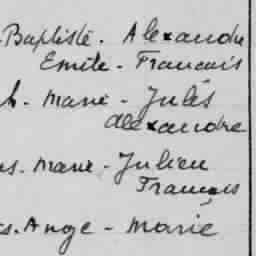 Baptiste. Alexandre
Emile - Francois
h. Marie - Jules
Alexandre
ns. Marie - Julien
Francois
s. Ange - Marie